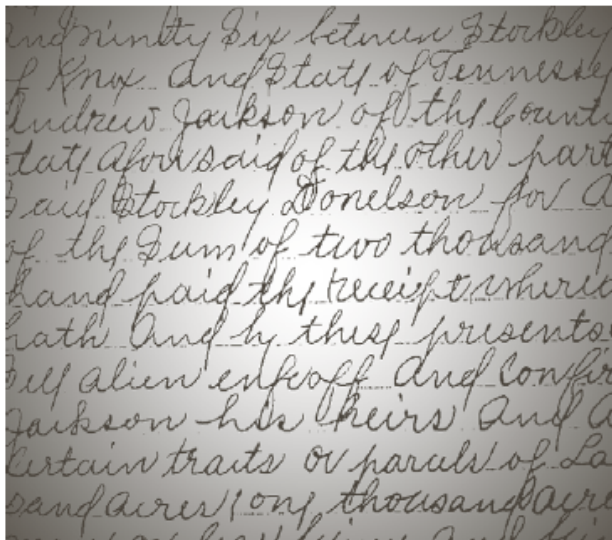 and ninety Six between Stockley
of Knox and State of Tennessee
Andrew Jackson of the Count
tate aforesaid of the other part
Said Stockley Donelson for a
of the Sum of two thousand
hand paid the receipt where
hath And by these presents
Sell alien enfeoff And Confir
Jackson his heirs And A
Certain traits or parcels of La
sand acres one thousand acre